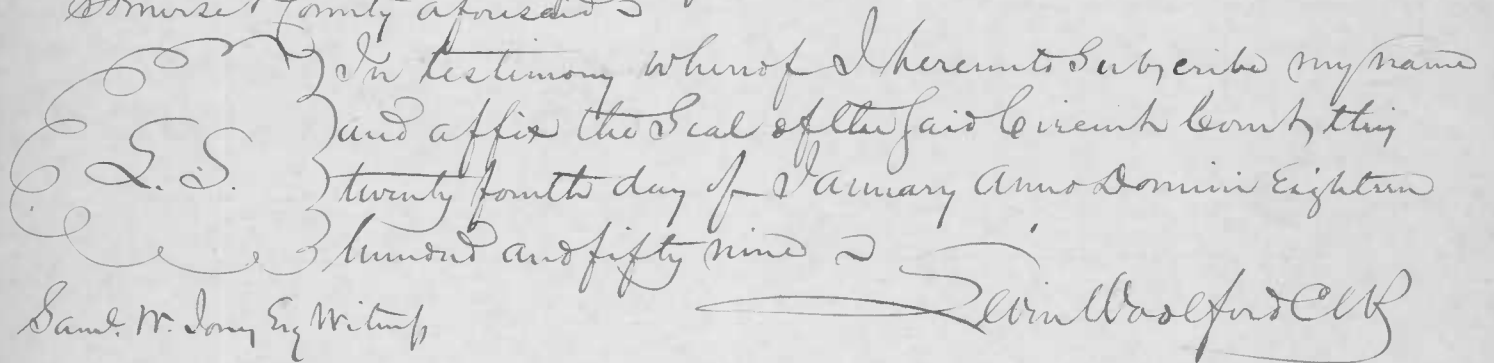 Somerset County aforesaid
In testimony whereof I hereunto Subscribe my name
and affix the Seal of the Said Circuit Court, this
L. S.
twenty fourth day of January Anno Domini Eighteen
hundred and fifty nine
Levin Woolford Clk
Saml. W. Jones Esq Witness